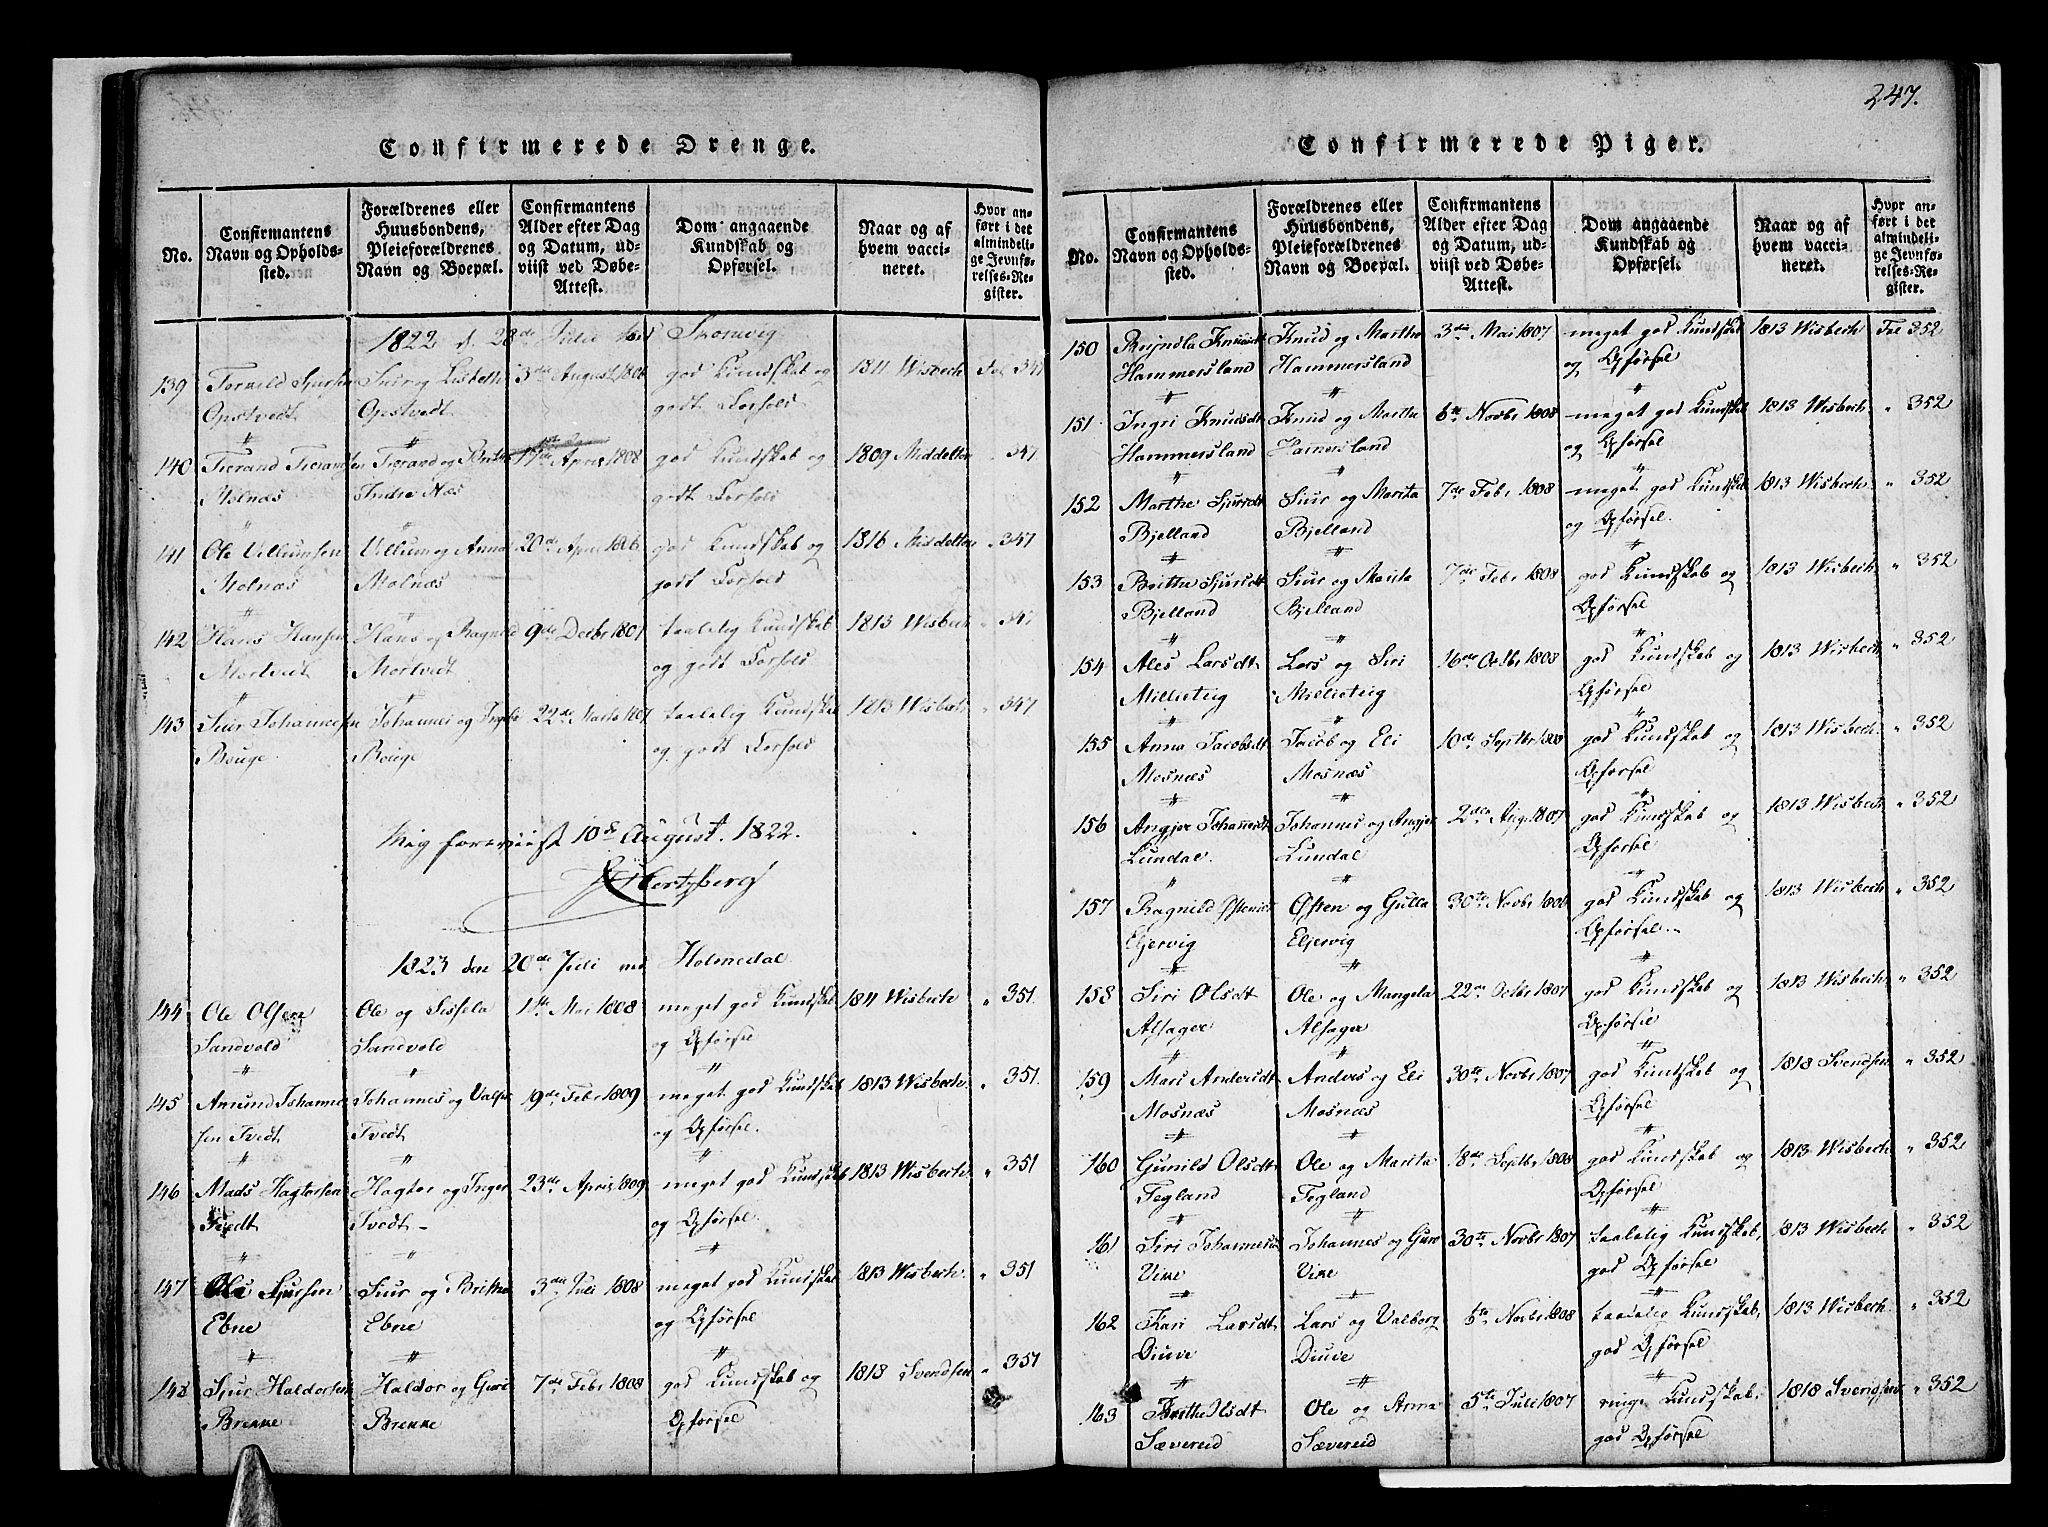 247.
Confirmerede Drenge.
No.
Confirmantens Navn og Opholdssted.
Forældrenes eller Huusbondens, Pleieforældrenes Navn og Boepæl.
Confirmantens Alder efter Dag og Datum, udviist ved Døbe-Attest.
Dom angaaende Kundskab og Opførsel.
Naar og af hvem vaccineret.
Hvor anført i det almindelige Jevnførelses-Register.
1822 d. 28de Julii ved
139 Tornild Sjursen Siur og Lisbeth 3de August 1806 god Kundskab og 1811 Wisbech Fol 347
Opstvedt Opstvedt godt Forhold
140 Tierand og Brithe April 1808 god Kundskab og 1809 Middelton 347
Molnæs Indre Næs godt Forhold
141 Ole Villumsen Villum og Anna 20de April 1806 god Kundskab og 1816 Middelton " 347
Molnæs Molnæs godt Forhold
142 Hans Hansen Hans og Ragnild 9de Decbr 1807 taalelig Kundskab 1813 Wisbech " 347
Mortvedt Mortvedt og godt Forhold
143 Siur Johannesen Johannes og 22de Marts 1807 taalelig Kundskab 1813 Wisbech " 347
Bouge Bouge og godt Forhold
Mig foreviist 10de August. 1822.
Hertzberg
1823 den 20de Juli ved Holmedal
144 Ole Olsen Ole og Sissela 1ste Mai 1808 meget god Kundskab 1811 Wisbech " 351.
Sandvold Sandvold og Opførsel
145 Amund Johannes Johannes og 19de Febr 1809 meget god Kundskab 1813 Wisbech " 351.
sen Tvedt Tvedt og Opførsel.
146 Mads Hagtorsen Hagtor og Inger 23de April 1809 meget god Kundskab 1813 Wisbech " 351
Tvedt Tvedt og Opførsel.
147 Ole Sjursen Siur og Brithe 3die Juli 1808 meget god Kundskab 1813 Wisbech " 351
Ebne Ebne og Opførsel
148 Sjur Haldorsen Haldor og Guri 7de Febr 1808 god Kundskab og 1818 Svendsen " 351
Brekke Brekke Opførsel
Confirmerede Piger.
No.
Confirmantens Navn og Opholdssted.
Forældrenes eller Huusbondens, Pleieforældrenes Navn og Boepæl.
Confirmantens Alder efter Dag og Datum, udviist ved Døbe-Attest.
Dom angaaende Kundskab og Opførsel.
Naar og af hvem vaccineret.
Hvor anført i det almindelige Jevnførelses-Register.
150 Knudsdt Knud og Marthe 3die Mai 1807 meget god Kundskab 1813 Wisbech Fol 352
Hammersland Hammersland og Opførsel
151 Ingri Knudsdt Knud og Marthe 6te Novbr 1808 meget god Kundskab 1813 Wisbech " 352
Hammersland Hamersland og Opførsel
152 Marthe Sjursdt Siur og Marita 7de Febr 1808 meget god Kundskab 1813 Wisbech " 352
Bjelland Bjelland og Opførsel.
153 Brithe Sjursdt Siur og Marita 7de Febr 1808 god Kundskab og 1813 Wisbech " 352
Bjelland Bjelland Opførsel
154 Ales Larsdt Lars og Siri 16de Octbr 1808 god Kundskab og 1813 Wisbech " 352
Millieteig Millieteig Opførsel
155 Anna Jacobsdt Jacob og Eli 10de Septbr 1808 god Kundskab og 1813 Wisbech " 352
Mosnæs Mosnæs Opførsel
156 Angjer Johannesdt Johannes og Angjer 2den Aug 1807 god Kundskab og 1813 Wisbech " 352
Lundal. Lundal Opførsel
157 Ragnild Østensdt Østen og Gulla 30te Novbr 1806 god Kundskab og 1813 Wisbech " 352
Eljervig Eljervig Opførsel
158 Siri Olsdt Ole og Mangela 22de Octbr 1807 god Kundskab og 1813 Wisbech " 352
Alsager Alsager Opførsel
159 Mari Andersdt Andres og Eli 30te Novbr 1807 god Kundskab og 1818 Svendsen " 352
Mosnæs Mosnæs Opførsel
160 Gunild Olsdt Ole og Marita 18de Septbr 1808 god Kundskab og 1813 Wisbech " 352
Tegland Tegland Opførsel
161 Siri Johannesdt Johannes og Guro 30te Novbr 1807 taalelig Kundskab, 1813 Wisbech " 352
Vike Vike god Opførsel
162 Kari Larsdt Lars og Valborg 6te Novbr 1808 taalelig Kundskab, 1813 Wisbech. " 352
Diuve Diuve god Opførsel
163 Brithe Olsdt Ole og Anna 5te Juli 1807 ringe Kundskab, 1818 Svendsen " 352
Sævereid Sævereid god Opførsel